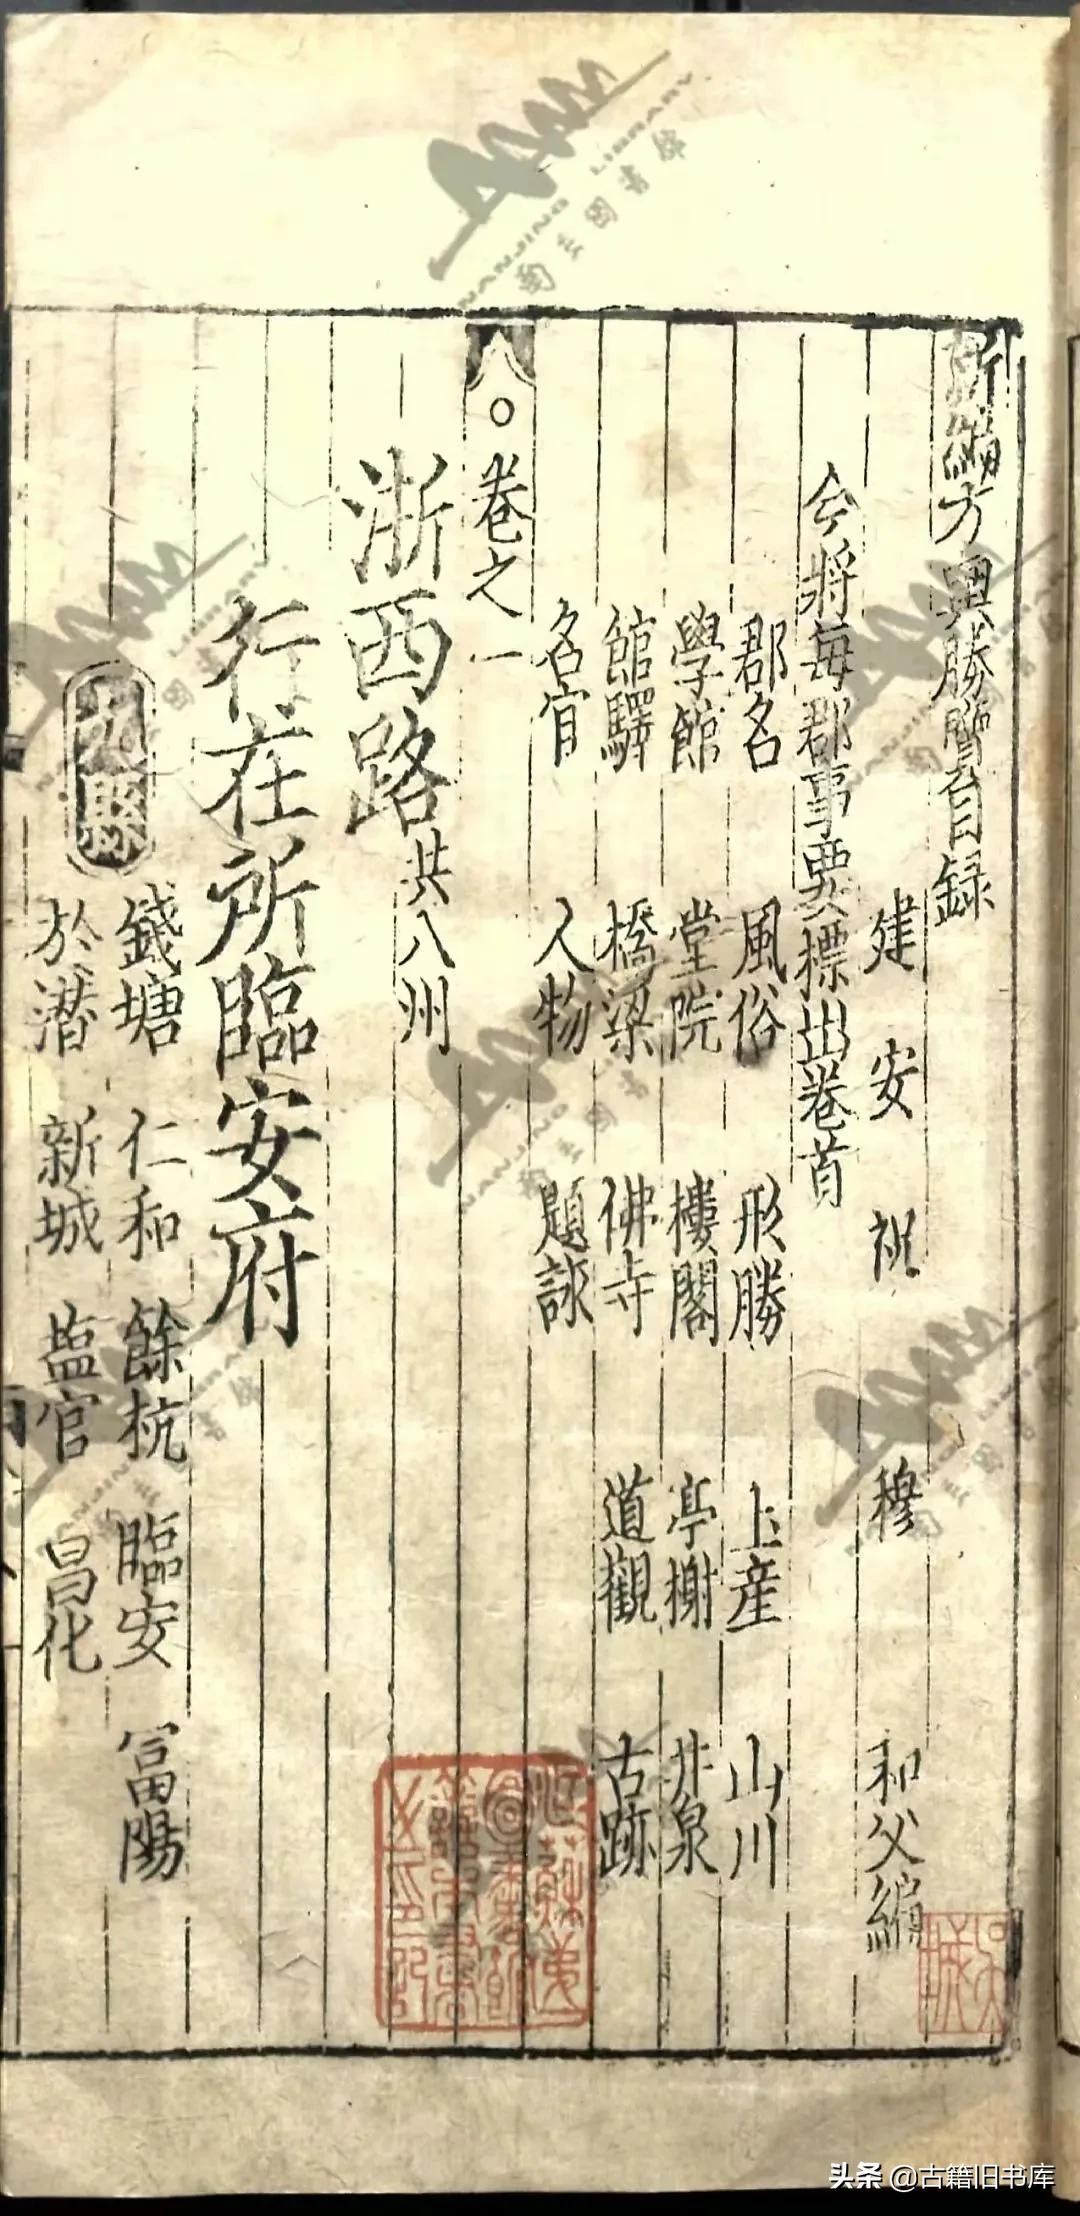 新編方輿勝覽目録
建安祝 穆 和父編
今將每郡事要標出卷首
郡名 風俗 形勝 土産 山川
學館 堂院 樓閣 亭榭 井泉
館驛 橋梁 佛寺 道觀 古跡
名宦 人物 題詠
卷之一
浙西路共八州
行在所臨安府
九縣
錢塘 仁和 餘杭 臨安 富陽
於潛 新城 塩官 昌化
头条 @古籍旧书库